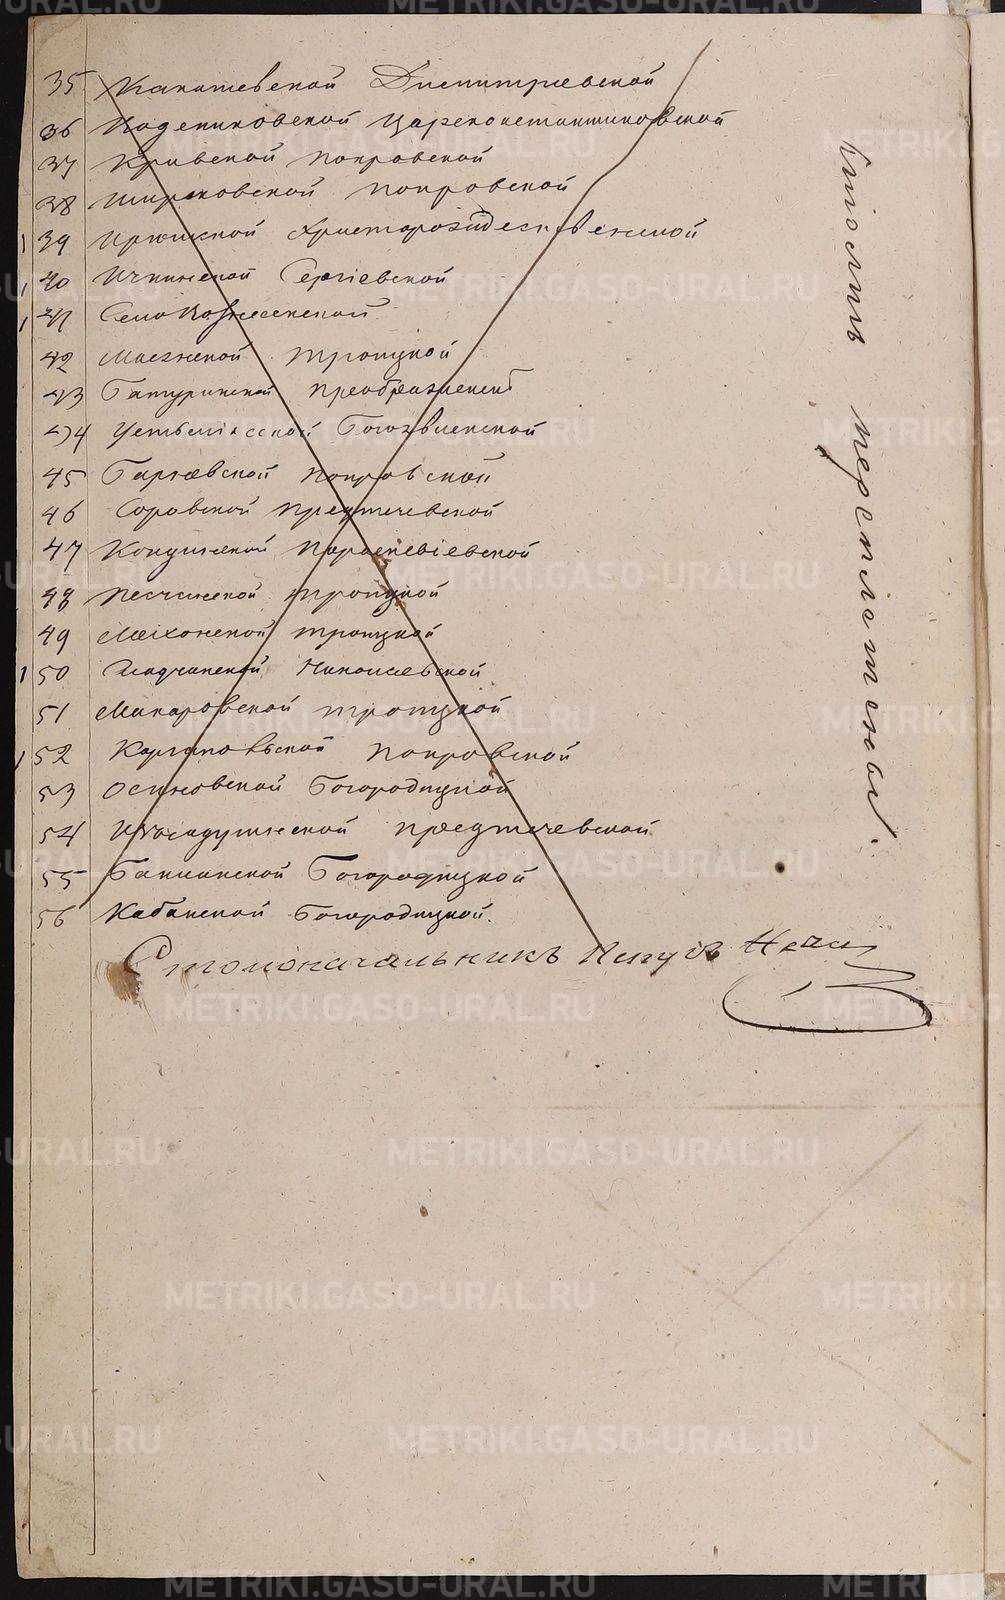 35 Канашевской Димитриевской
36 Кодениковской Цареконстантиновской
37 Кривской Покровской
38 Широковской Покровской
1 39 Иргинской Христорождественской
1 40 Ичкинской Сергіевской
1 41 Село Вознесенской
42 Мостовской Троицкой
43 Батуринской Преображенск
44 Устьміасской Богоявленской
45 Барневской Покровской
46 Соровской Предтечевской
47 Кондинской Параскевіевской
48 Песчанской Троицкой
49 Мехонской Троицкой
1 50 Николаевской
51 Макаровской Троицкой
1 52 Каргапольской Покровской
53 Осиновской Богородицкой
54 Предтечевской
55 Бакланской Богородицкой
56 Кабанской Богородицкой.
Столоначальникъ
Кніогамъ переплетены.
METRIKI.GASO-URAL.RU